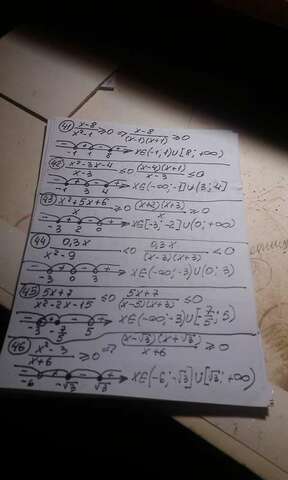 (41) x-8/x²-1 ≥0 ⇒ x-8/(x-1)(x+1) ≥0
- + - + -1 1 8 x∈(-1;1)∪[8;+∞)
(42) x²-3x-4/x-3 ≤0 (x-4)(x+1)/x-3 ≤0
- + - + -1 3 4 x∈(-∞;-1]∪(3;4]
(43) x²+5x+6/x ≥0 (x+2)(x+3)/x ≥0
- + - + -3 2 0 x∈[-3;-2]∪(0;+∞)
(44) 0,3x/x²-9 <0 0,3x/(x-3)(x+3) <0
- + - + -3 0 3 x∈(-∞;-3)∪(0;3)
(45) 5x+7/x²-2x-15 ≤0 5x+7/(x-5)(x+3) ≤0
- + - + -3 -7/5 5 x∈(-∞;-3)∪[-7/5;5)
(46) x²-3/x+6 ≥0 ⇒ (x-√3)(x+√3)/x+6 ≥0
- + - + -6 -√3 √3 x∈(-6;-√3]∪[√3;+∞)